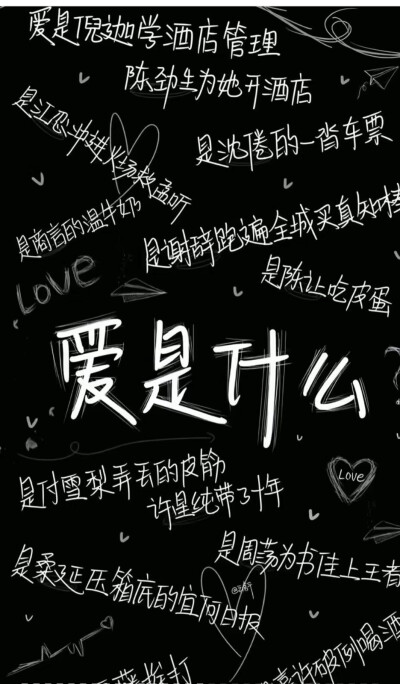 爱是倪迦学酒店管理
陈劲生为她开酒店
是江忍冲进火场救孟听
是沈倦的一沓车票
是商言的温牛奶
是谢辞跑遍全城买真知棒
LOVE
是陈让吃皮蛋
爱是什么
LOVE
是付雪梨弄丢的皮筋
许星纯带了十年
是周荡为书佳上王者
是柔延压箱底的宜何日报
许破例喝酒
挨打